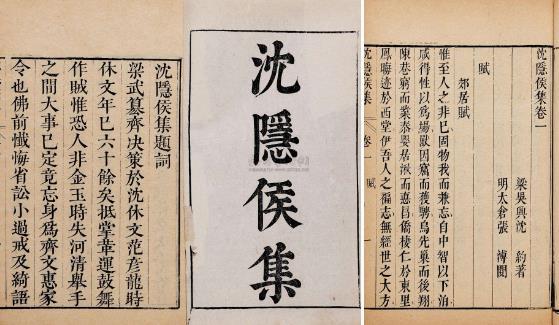 沈隱侯集題詞
梁武篡齊决策於沈休文范彥龍時
休文年已六十餘矣抵掌革運鼓舞
作賊惟恐人非金玉時失河清舉手
之間大事已定竟忘身爲齊文惠家
令也佛前懺悔省訟小過戒及綺語
沈隱侯集
沈隱侯集卷一
梁吳興沈 約著
明太倉張 溥閱
賦
郊居賦
惟至人之非已固物我而兼忘自中智以下洎
咸得性以爲塲獸因窟而獲騁鳥先巢而後翔
陳巷窮而業泰嬰居湫而德昌僑棲仁於東里
鳳晦迹於西堂伊吾人之褊志無經世之大方
沈隱侯集 卷一 賦